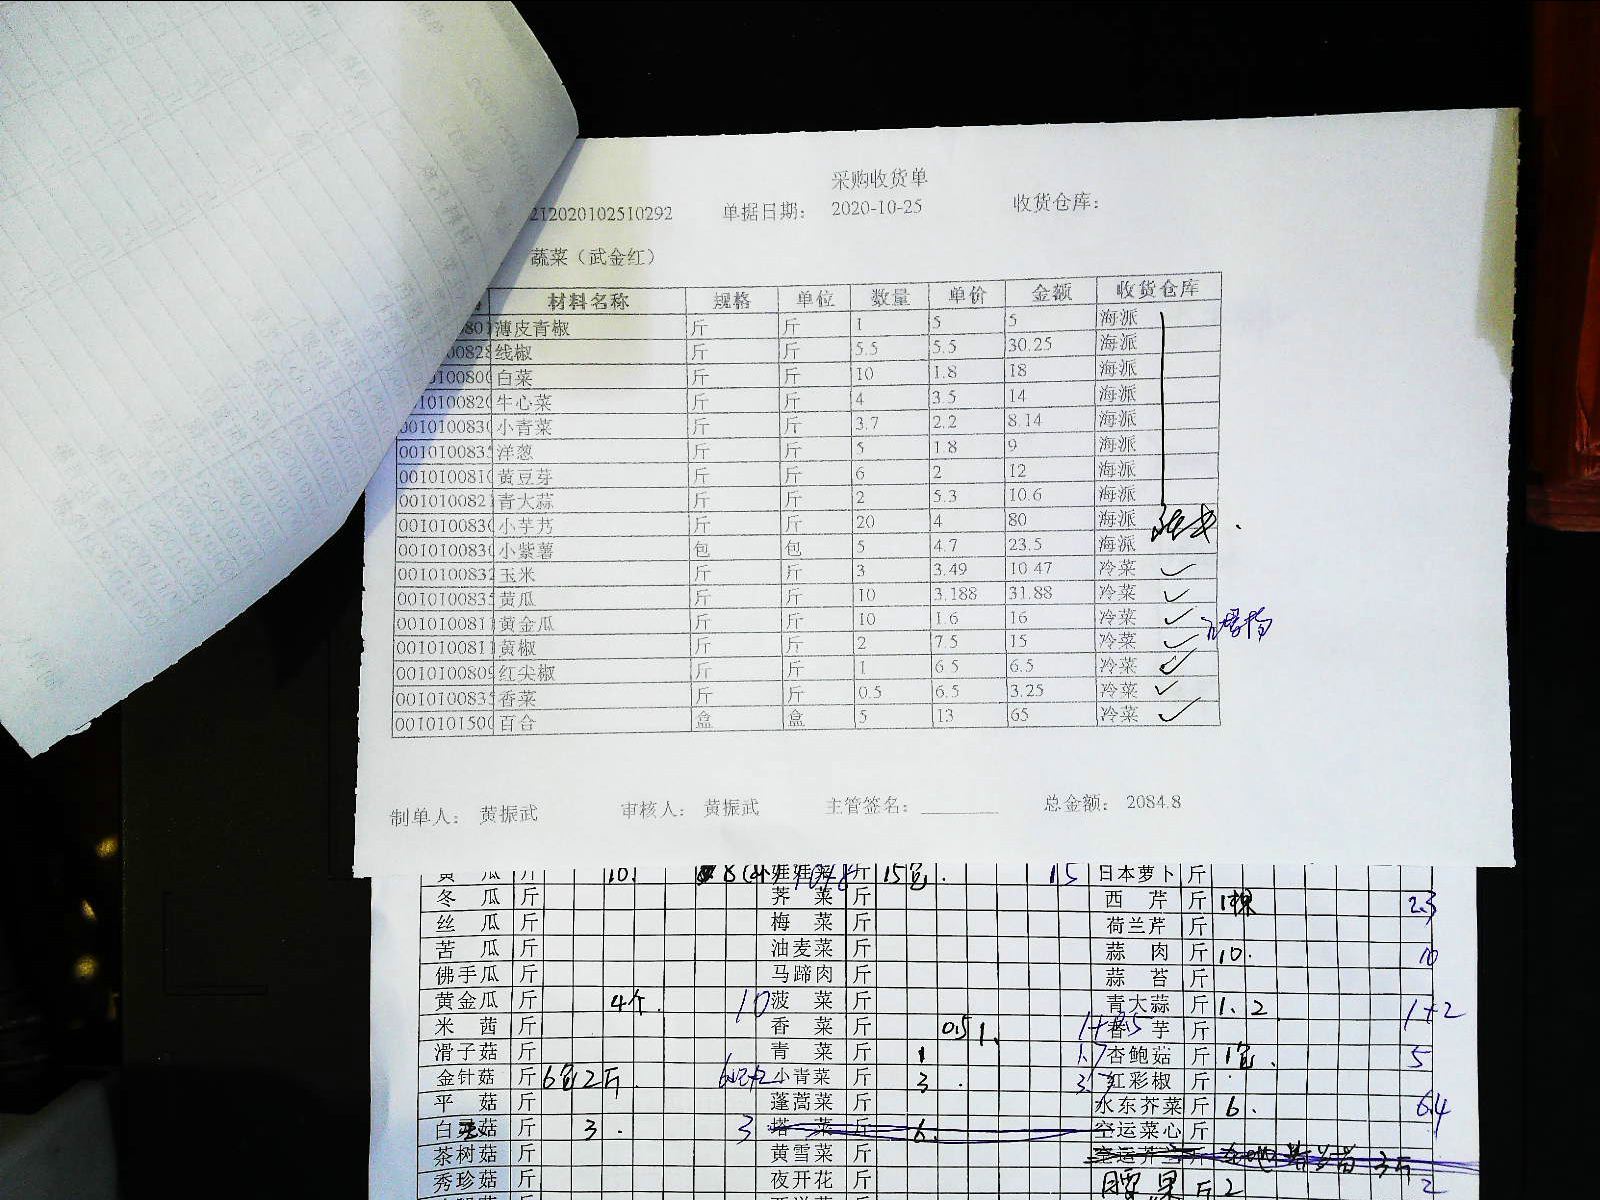 采购收货单
212020102510292 单据日期: 2020-10-25 收货仓库:
蔬菜（武金红）
材料名称 规格 单位 数量 单价 金额 收货仓库
薄皮青椒 斤 斤 1 5 5 海派
线椒 斤 斤 5.5 5.5 30.25 海派
白菜 斤 斤 10 1.8 18 海派
牛心菜 斤 斤 4 3.5 14 海派
小青菜 斤 斤 3.7 2.2 8.14 海派
001010083 洋葱 斤 斤 5 1.8 9 海派
001010081 黄豆芽 斤 斤 6 2 12 海派
001010082 青大蒜 斤 斤 2 5.3 10.6 海派
001010083 小芋艿 斤 斤 20 4 80 海派
001010083 小紫薯 包 包 5 4.7 23.5 海派
001010083 玉米 斤 斤 3 3.49 10.47 冷菜
001010083 黄瓜 斤 斤 10 3.188 31.88 冷菜
001010081 黄金瓜 斤 斤 10 1.6 16 冷菜
001010081 黄椒 斤 斤 2 7.5 15 冷菜
001010080 红尖椒 斤 斤 1 6.5 6.5 冷菜
001010083 香菜 斤 斤 0.5 6.5 3.25 冷菜
001010150 百合 盒 盒 5 13 65 冷菜
制单人: 黄振武 审核人: 黄振武 主管签名: 总金额: 2084.8
黄 瓜 斤 10. 斤 15包. 15 日本萝卜 斤
冬 瓜 斤 荠 菜 斤 西 芹 斤 1棵 2.3
丝 瓜 斤 梅 菜 斤 荷兰芹 斤
苦 瓜 斤 油麦菜 斤 蒜 肉 斤 10. 10
佛手瓜 斤 马蹄肉 斤 蒜 苔 斤
黄金瓜 斤 4个. 10 菠 菜 斤 青大蒜 斤 1. 2 1+2
米 茜 斤 香 菜 斤 0.5 1. 香 芋 斤
滑子菇 斤 青 菜 斤 1 1.7 杏鲍菇 斤 1包. 5
金针菇 斤 6包2斤 小青菜 斤 3. 3.7 红彩椒 斤
平 菇 斤 蓬蒿菜 斤 水东芥菜 斤 6. 6.4
白 菇 斤 3. 3 塔 菜 斤 6. 空运菜心 斤
茶树菇 斤 黄雪菜 斤 3斤
秀珍菇 斤 夜开花 斤 腰果 斤 2 2